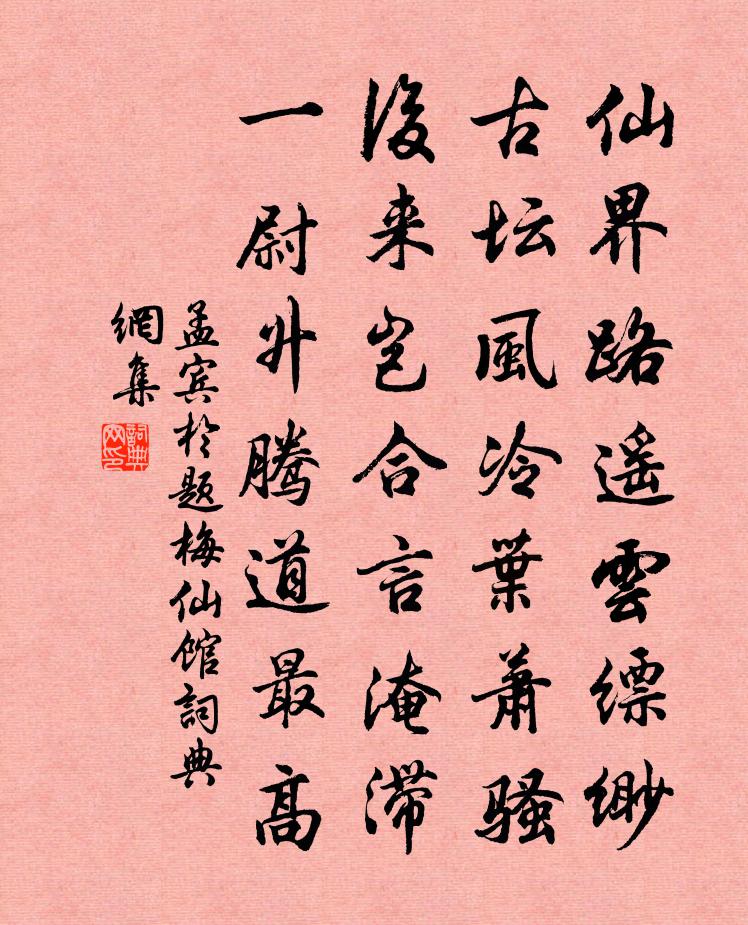 仙界路遥雲縹緲
古坛風冷葉蕭骚
後来岂合言淹滞
一尉升腾道最高
孟宾於题梅仙馆詞典
網集
詞典網印